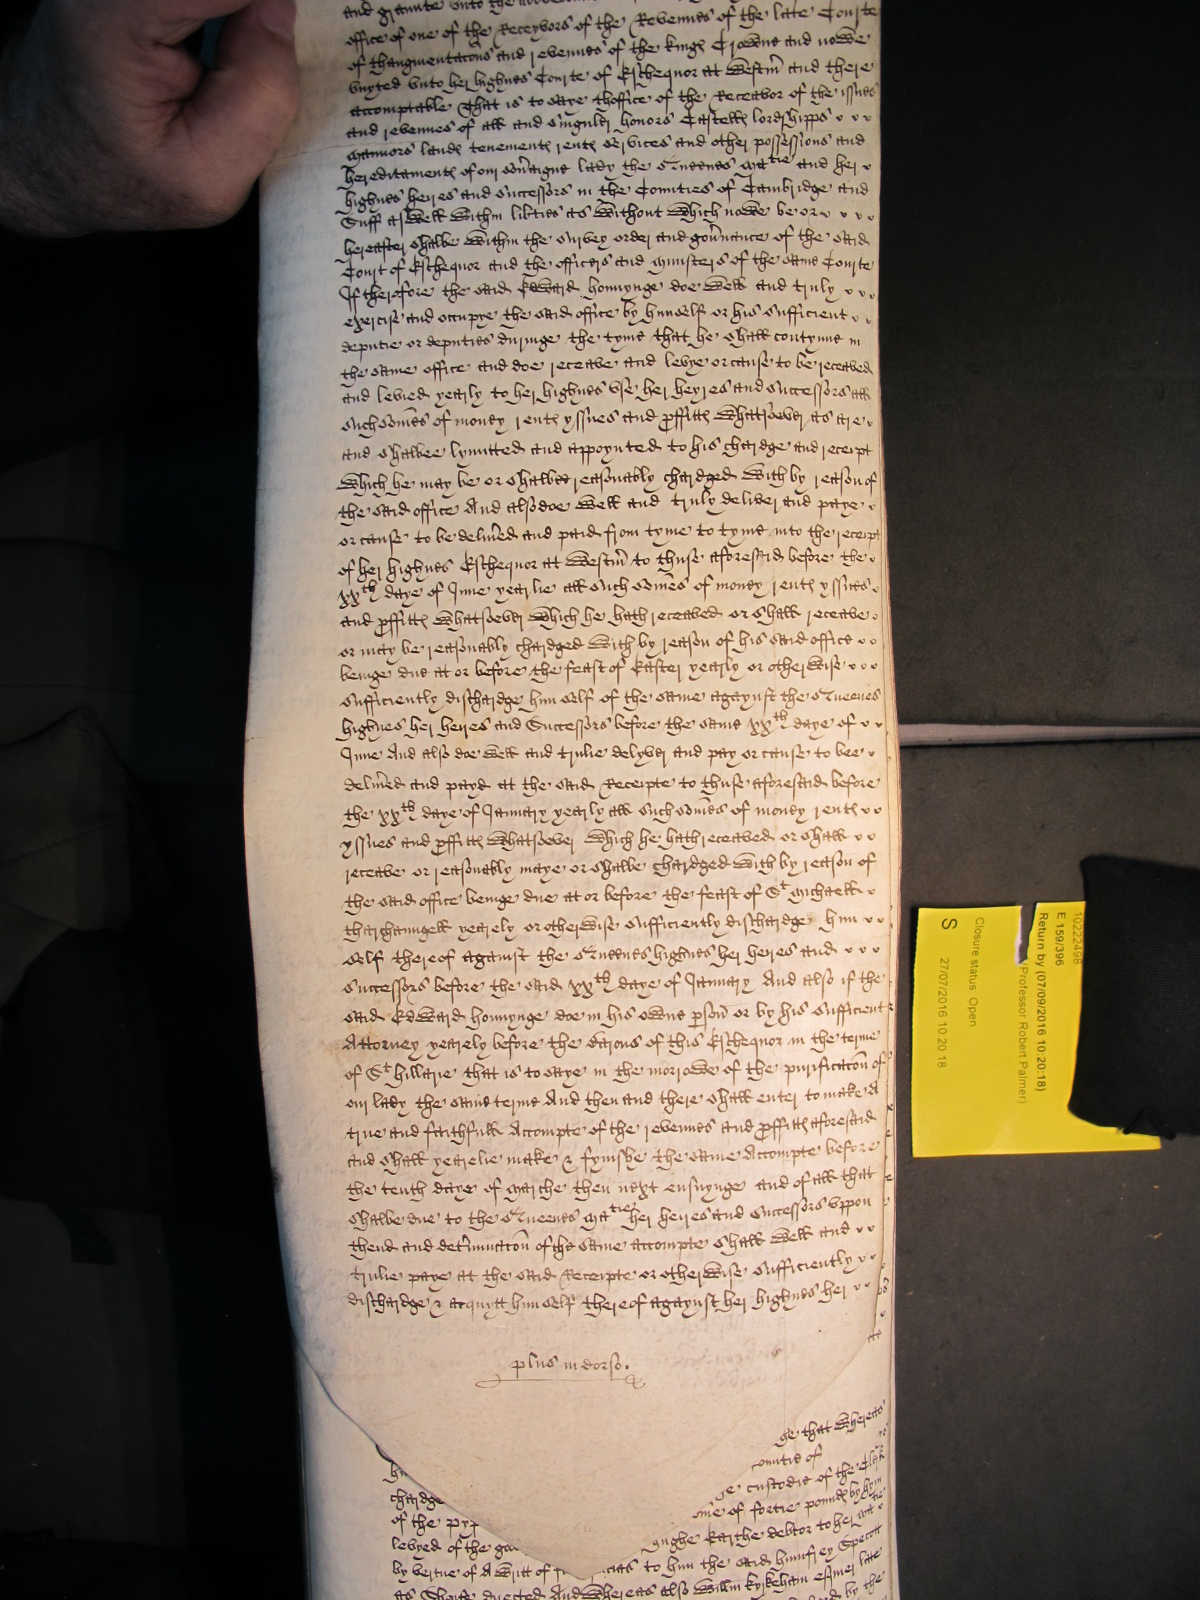 and graunte unto the above
office of one of the Receyvors of the Revenues of the late Courte
of thaugmentac̃ons and revenues of the kings Crowne and nowe
vnyted vnto her highnes Courte of Excheqour at Westm̃ and there
accomptable That is to saye thoffice of the Receavor of the issues
and revenues of all and singuler honors Castells lordshipps v v v
mannors lands tenements rents services and other possessions and
hereditaments of our sov̾aigne lady the Quenes Ma^tie and her v
highnes heires and successors in the Counties of Cambridge and
Suff aswell within lib̾ties as without Which nowe be or v v v v
hereafter shalbe within the survey order and gov̾nance of the said
Court of Excheqour and the officers and ministers of the same Courte
If therefore the said Edward hounynge doe well and truly v v v
exercise and occupye the said office by himself or his sufficient v v
deputie or deputies duringe the tyme that he shall contynue in
the same office and doe receave and levye or cause to be receaved
and levied yearly to her highnes vse her heyres and successors all
such som̃es of money rents yssues and ꝓffitts whatsoever as are v
and shalbee lymitted and appoynted to his chardge and receipt
Which he may be or shalbe reasonably chardged with by reason of
the said office And also doe well and truly deliver and paye v
or cause to be deliv̾ed and paid from tyme to tyme into the receipt
of her highnes Excheqour at Westm̃ to thuse aforesaid before the v
xx^th daye of June yearlie all such som̃es of money rents yssues v
and ꝓffitts whatsoever Which he hath receaved or shall receave v
or may be reasonably chardged with by reason of his said office v v
beinge due at or before the feast of Easter yearly or otherwise v v v
sufficiently dischardge him self of the same agaynst the Queenes
highnes her heires and Successors before the same xx^th daye of v v
June And also doe well and trulie delyver and pay or cause to bee v
deliv̾ed and payd at the said Receipte to thuse aforesaid before
the xx^th daye of January yearly all such som̃es of money rents v v
yssues and ꝓffitts whatsoever Which he hath receaved or shall v v
receave or reasonably maye or shalbe chardged with by reason of
the said office beinge due at or before the feast of S^t Michaell v
tharchaungell yearely or otherwise sufficiently dischardge him v v
self thereof against the Quenes highnes her heires and v v v
successors before the said xx^th daye of January And also if the
said Edward hounynge doe in his owne ꝑson̾ or by his sufficient
Attorney yearely before the Barons of this Excheqour in the terme
of S^t hillarie that is to saye in the morrowe of the purificac̃on of
our lady the same terme And then and there shall enter to make A
true and faithfull Accompte of the revenues and ꝓffitts aforesaid
and shall yearelie make & fynishe the same Accompte before
the tenth daye of Marche then next ensuynge and of all that
shalbe due to the Queenes Ma^tie her heires and successors vppon
thend and det̾minac̃on of the same accompte shall well and v v
trulie paye at the said Receipte or otherwise sufficiently v v
dischardge & acquytt himself thereof agaynst her highnes her v v
plus in dorso.
ge that Whereas
chardge
ge custodie of the
of the
some of fortie pounds by
levyed of the
Karthe debtor to her
by vertue of A Writt of
to him the said humfrey
directed And Whereas also Willm̃ Kyrkeham esquier late
by the
10222498
E 159/396
Return by (07/09/2016 10:20:18)
(Professor Robert Palmer)
Closure status: Open
27/07/2016 10:20:18
S